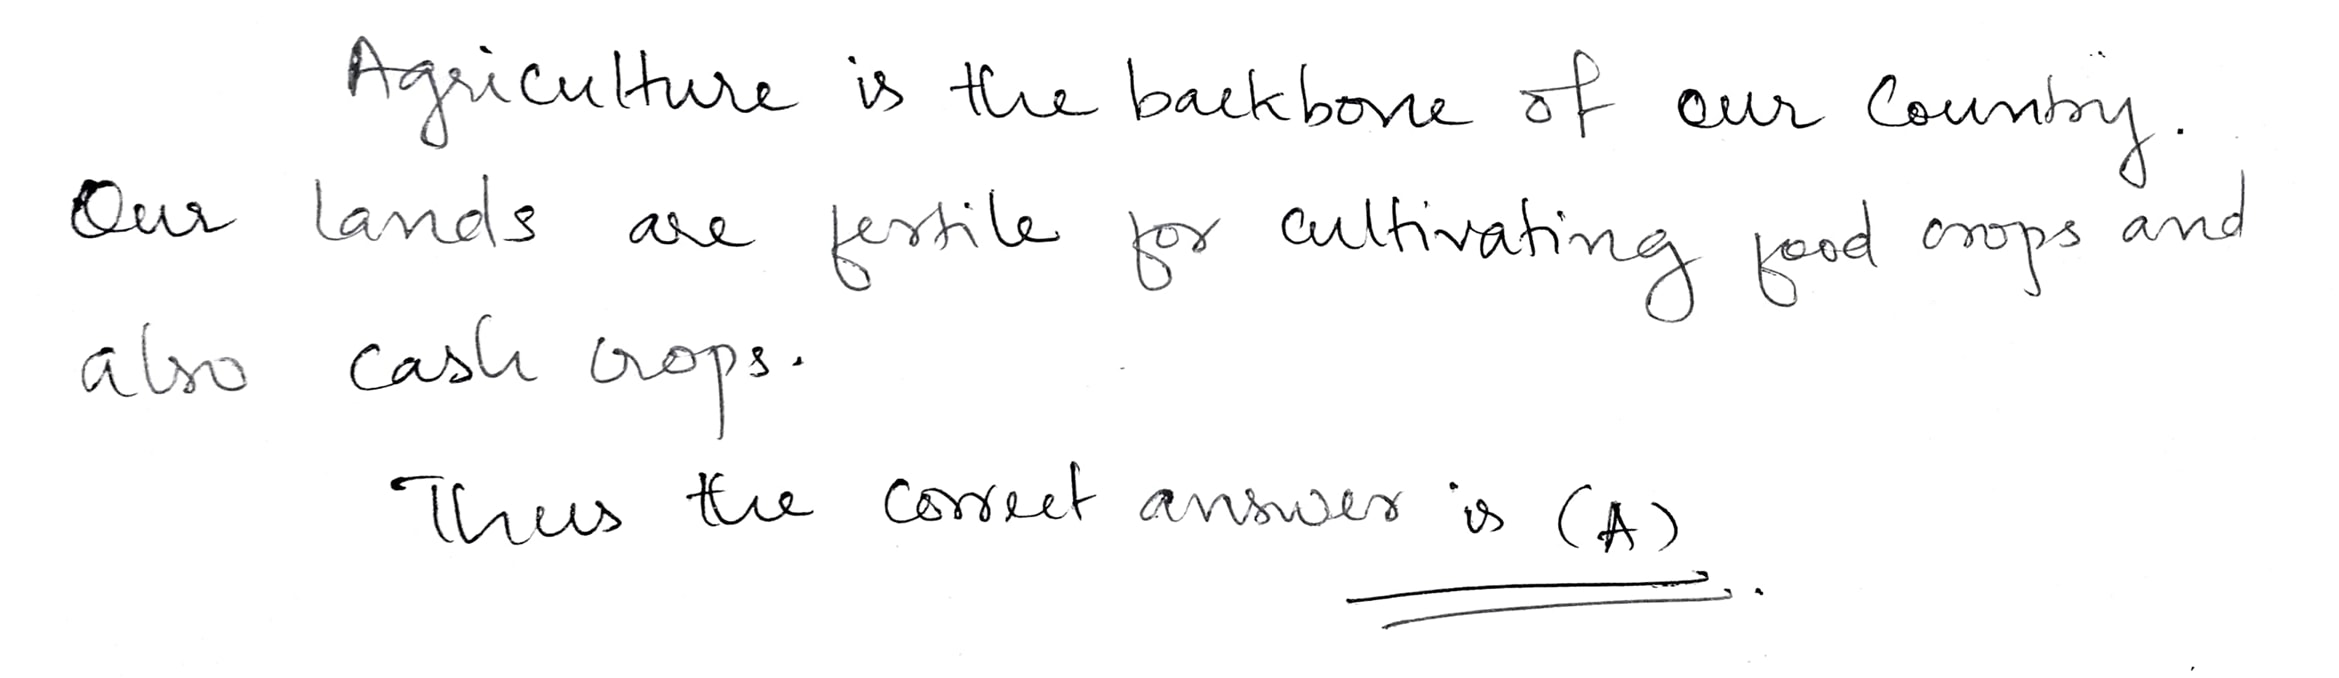 Agriculture is the backbone of our country.
Our lands are fertile for cultivating food crops and
also cash crops.
Thus the correct answer is (A).